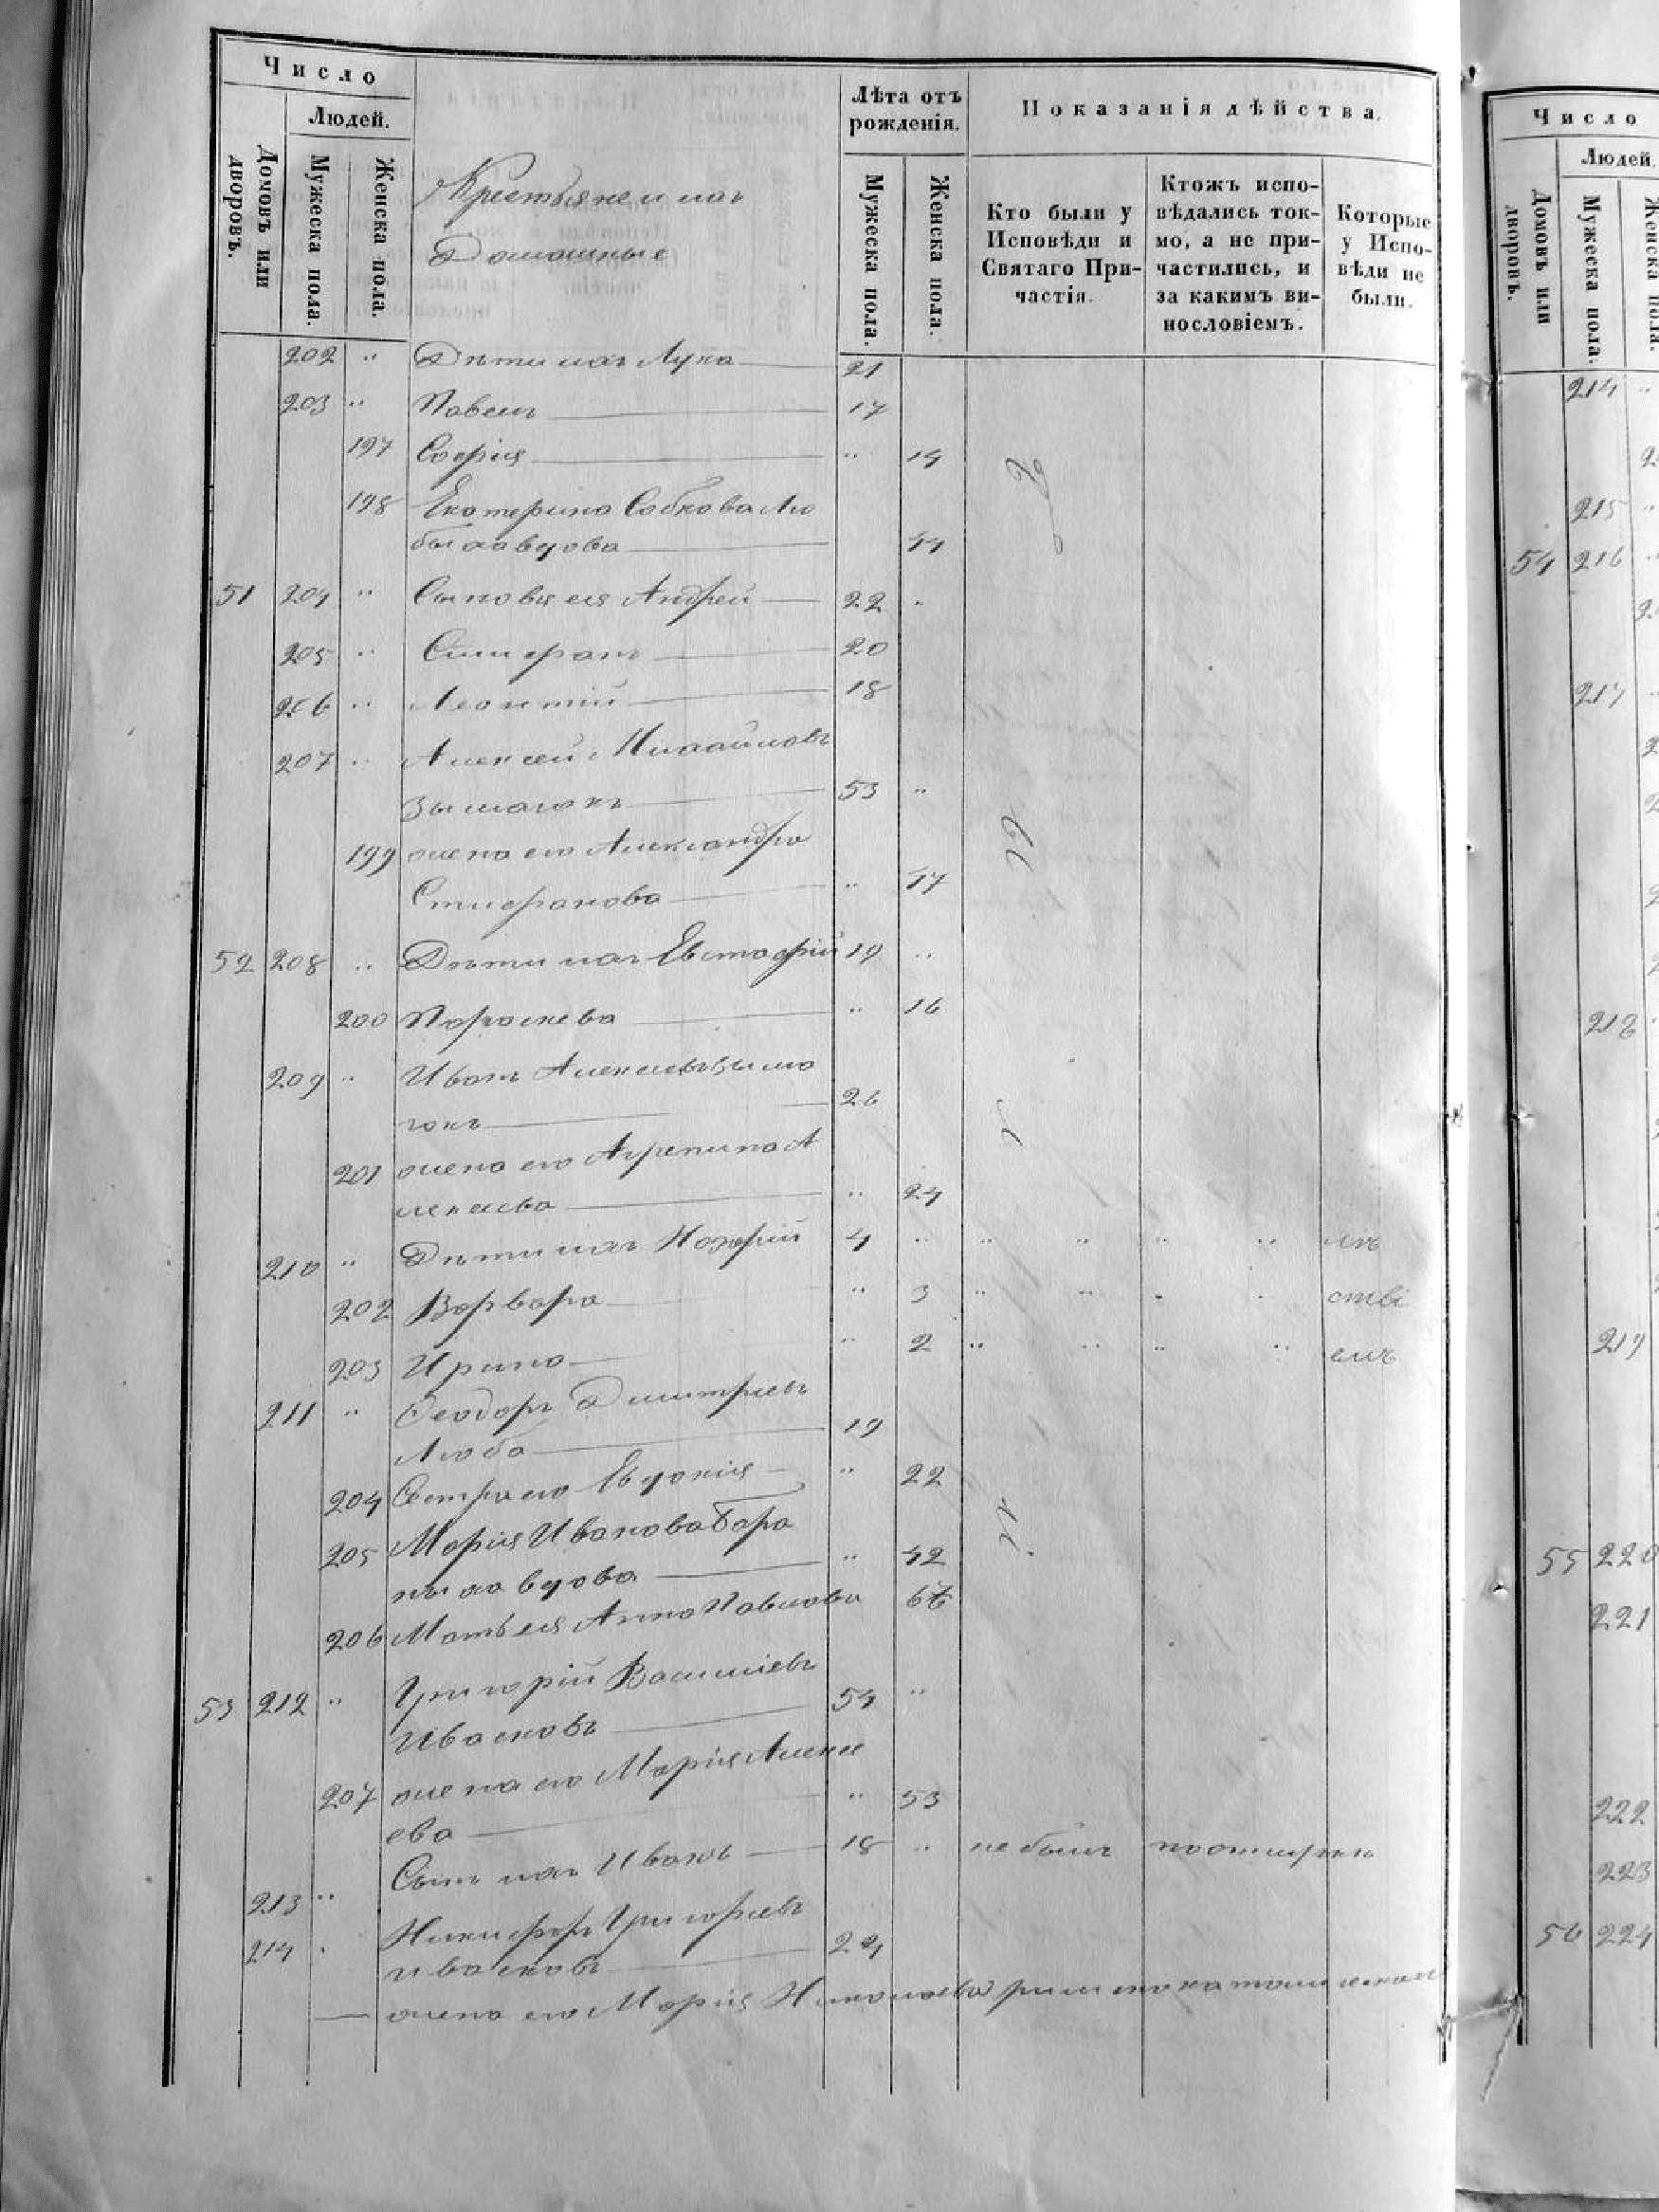 Число
Людей.
Домовъ или дворовъ.
Мужеска пола.
Женска пола.
Крестьяне и ихъ
Домашные
Лѣта отъ рожденія.
Мужеска пола.
Женска пола.
Показанія дѣйства.
Кто были у Исповѣди и Святаго Причастія.
Ктожъ исповѣдались токмо, а не причастились, и за какимъ винословіемъ.
Которые у Исповѣди не были.
202 " Дѣти ихъ Лука 21
203 " Павелъ 17
197 Софія " 14
198 Екатерина Собкова Лю
быха вдова 44
51 204 " Сыновья ея Андрей 22 "
205 " 20
206 " Леонтій 18
207 " Алексей Михайловъ
53 "
199 жена его Александра
" 47
52 208 " Дѣти ихъ Евстафій 19 "
200 Параскева " 16
209 " Иванъ
26
201 жена его Агрепина А
лексеева " 24
210 " Дѣти ихъ 4 " " " " "
202 Варвара " 3 " "
203 Ирина " 2 " " " "
211 " Феодоръ Димитріевъ
Люба 19
204 Сестра его Евдокія " 22
205 Марія Иванова Бара
ныха вдова " 42
206 Мать ея Анна Павлова
53 212 " Григорій Василіевъ
Ивасковъ 54 "
207 жена его Марія Алексе
ева " 53
213 " Сынъ ихъ Иванъ 18 " не былъ
214 Никифоръ Григорьевъ
Ивасковъ 24
— жена его Марія Николаева римско католической
Число
Людей.
Домовъ или дворовъ.
Мужеска пола.
Женска пола.
214 "
215 "
54 216 "
217 "
218
219
55 220
221
222
223
56 224